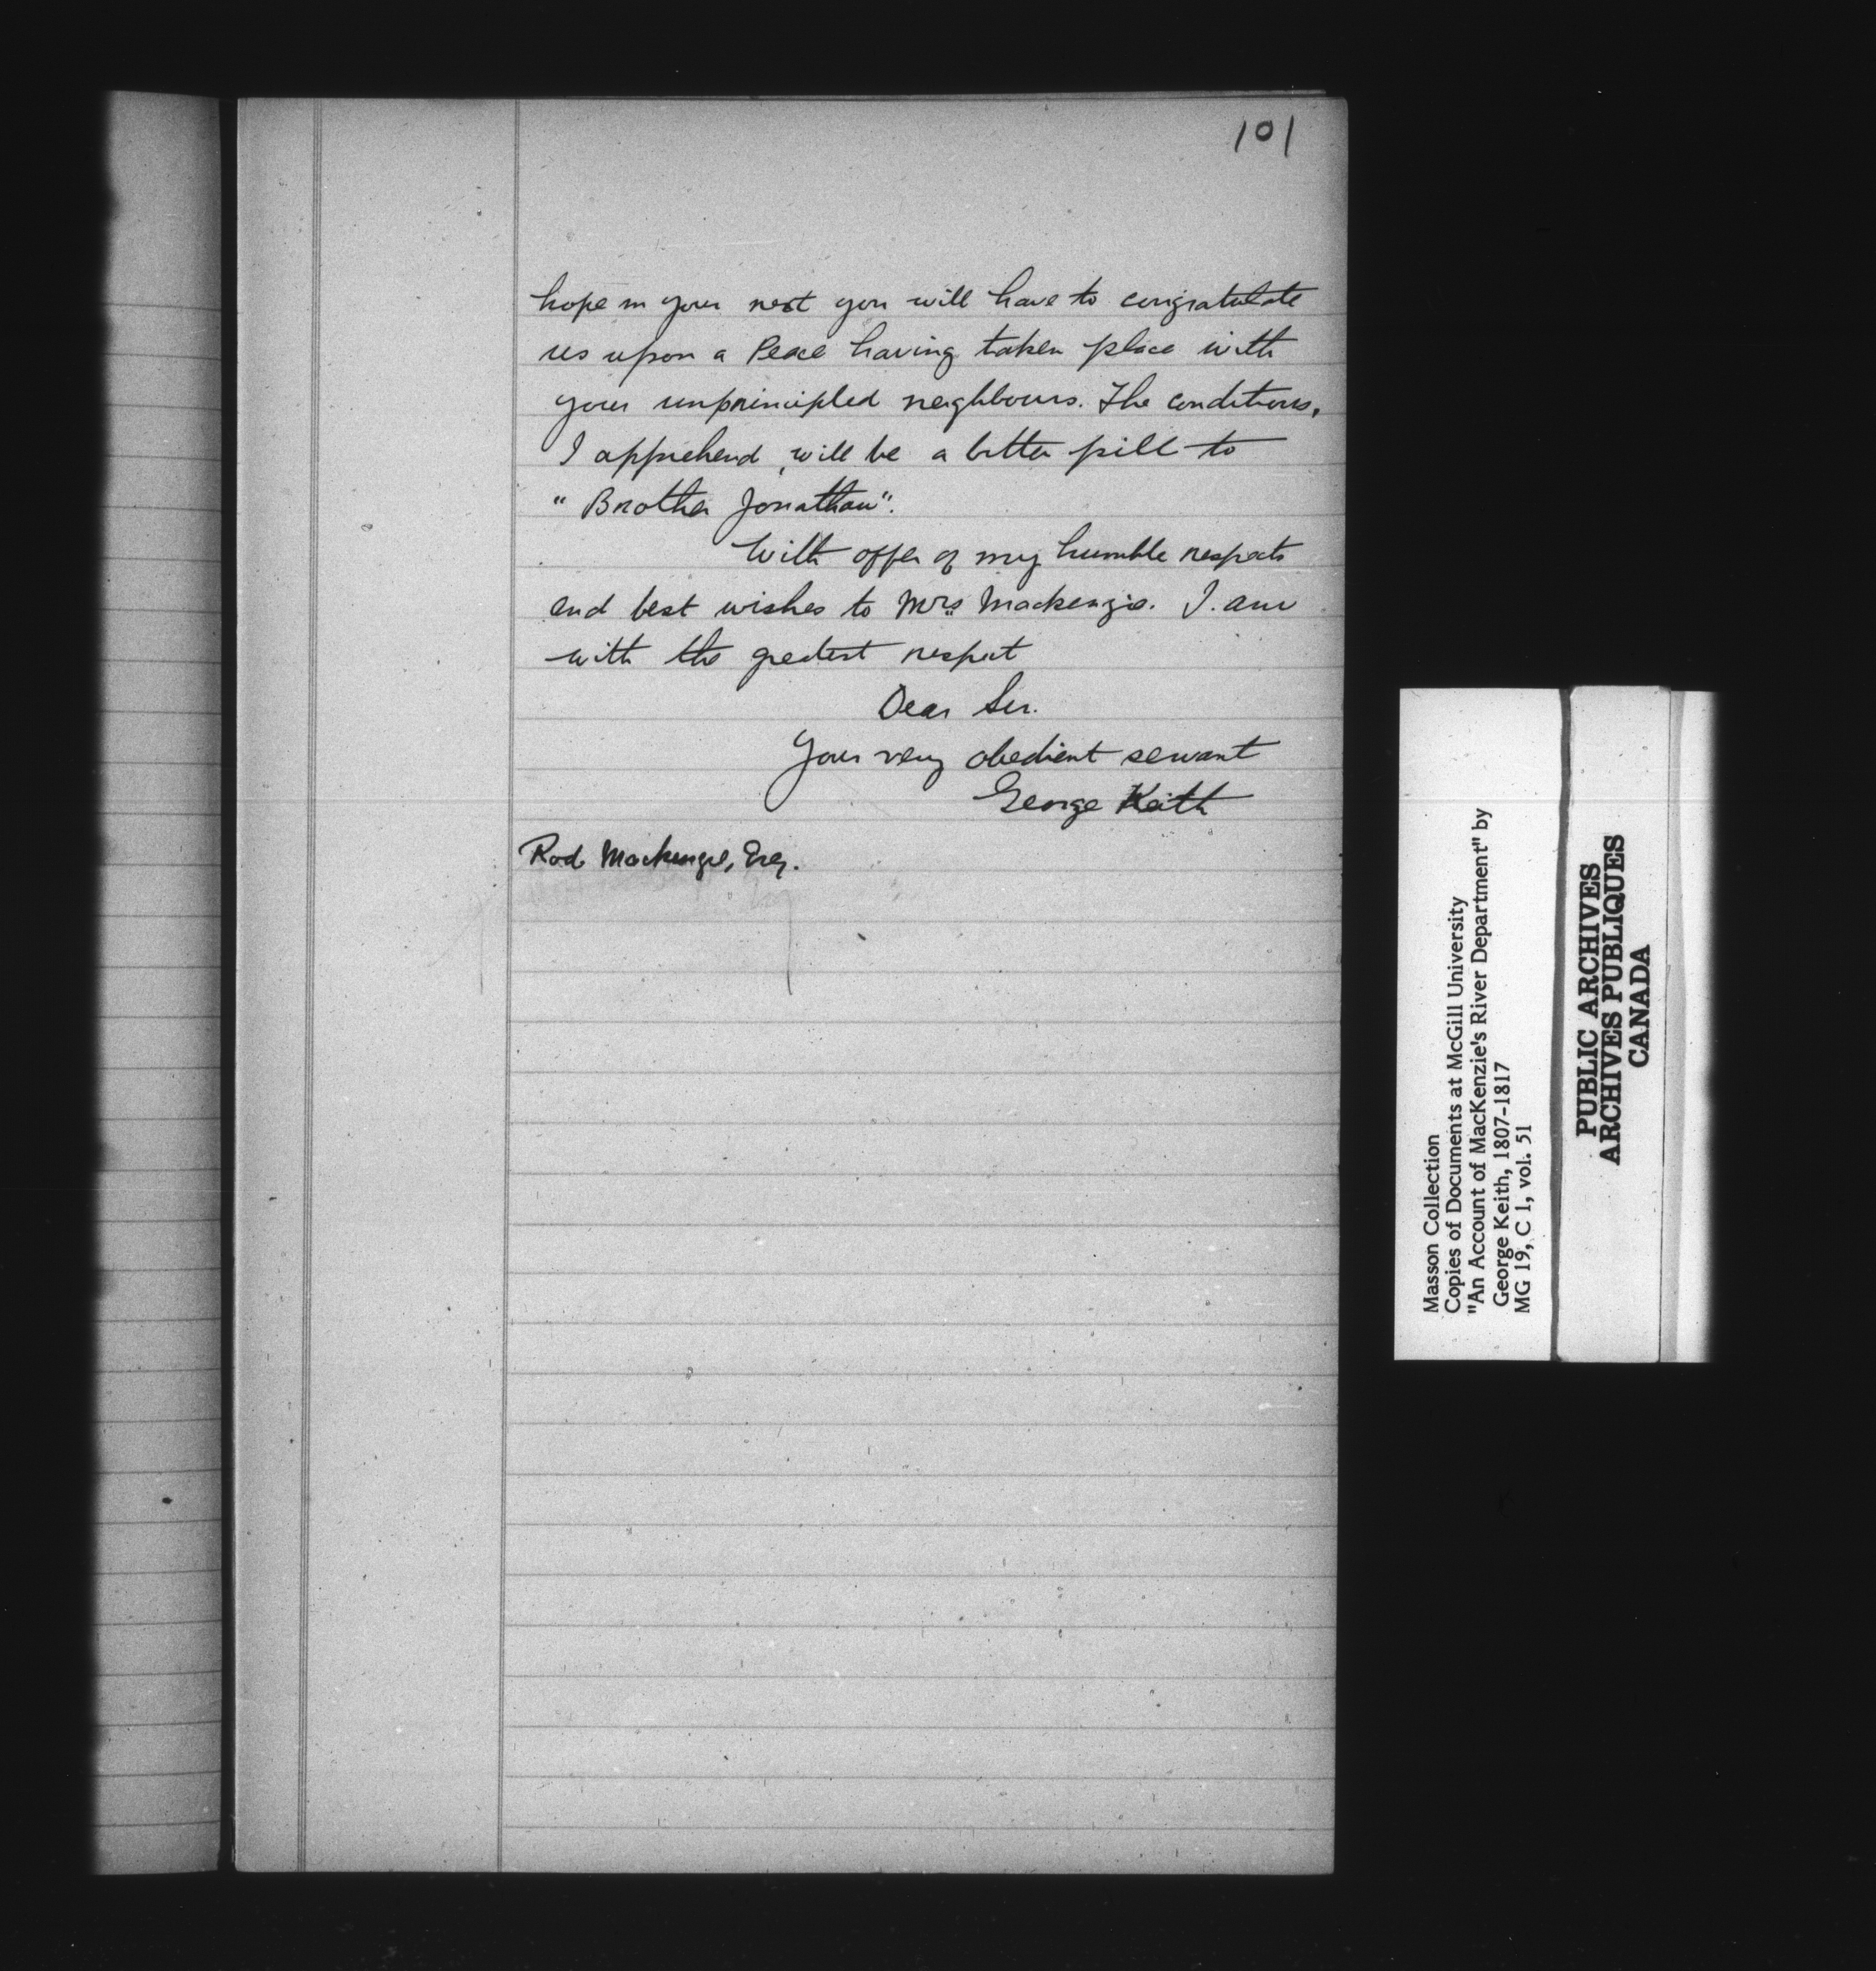 101
hope in your next you will have to congratulate
us upon a Peace having taken place with
your unprincipled neighbours. The conditions,
I apprehend, will be a bitter pill to
"Brother Jonathan".
With offer of my humble respects
and best wishes to Mrs Mackenzie. I am
with the greatest respect
Dear Sir.
Your very obedient servant
George Keith
Rod Mackenzie, Esq.
Masson Collection
Copies of Documents at McGill University
"An Account of MacKenzie's River Department" by
George Keith, 1807-1817
MG 19, C 1, vol. 51
PUBLIC ARCHIVES
ARCHIVES PUBLIQUES
CANADA